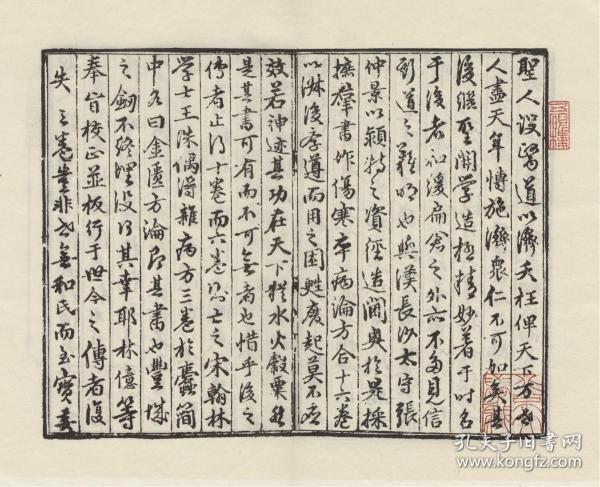 聖人設醫道以濟夭枉俾天下萬世
人盡天年博施濟眾仁不可加矣其
後繼聖開學造極精妙著于時名
于後者和緩扁倉之外亦不多見信
斯道之難明也與漢長沙太守張
仲景以穎特之資徑造閫奧於是採
摭群書作傷寒卒病論方合十六卷
以淋後學遵而用之困甦廢起莫不應
效若神迹其功在天下猶水火穀粟然
是其書可有而不可無者也惜乎後之
傳者止得十卷而六卷則亡之宋翰林
學士王洙偶得雜病方三卷於蠹簡
中名曰金匱方論即其書也豐城
之劍不終埋沒何其幸耶林億等
奉旨校正並板行于世今之傳者復
失三卷豈非世無和氏而至寶妄
孔夫子旧书网
www.kongfz.com